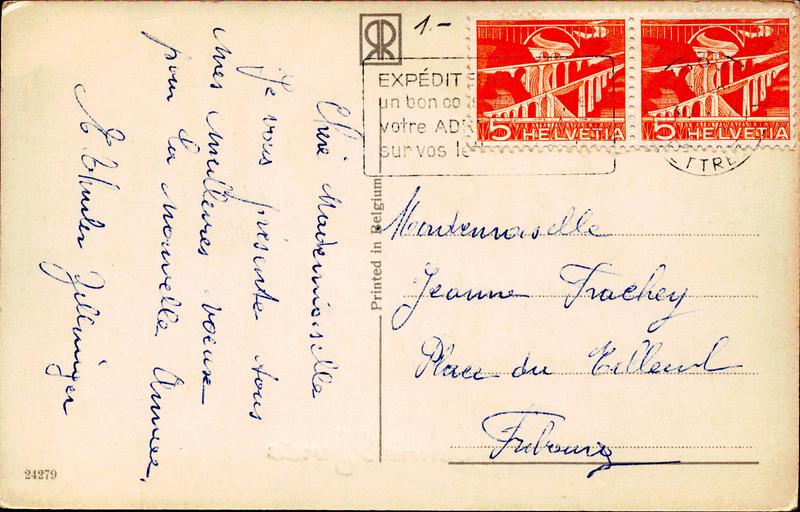 RR
1.-
EXPÉDIT
un bon co
votre AD
sur vos le
5 HELVETIA
5 HELVETIA
TTRE
Chère Mademoiselle
Je vous présente tous
mes meilleures voeux
pour la nouvelle Année.
Printed in Belgium
Mademoiselle
Jeanne Trachey
Place du Tilleul
Fribourg
24279